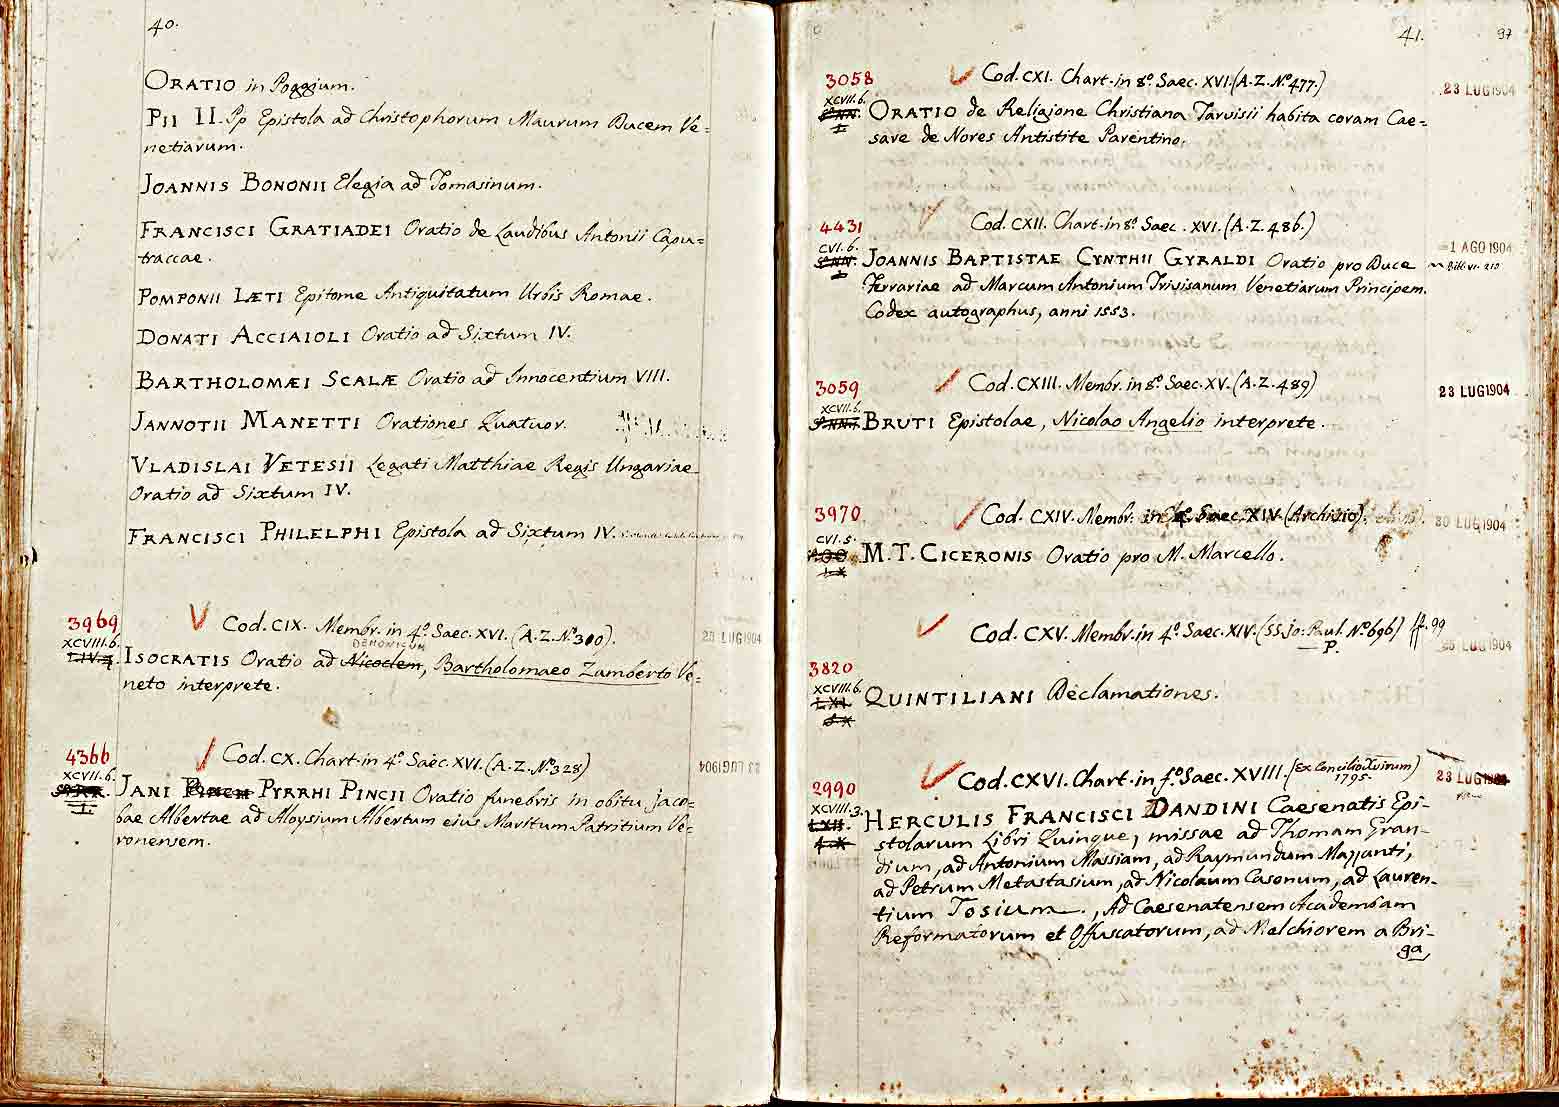 40.
ORATIO in Poggium.
PII II. Pp Epistola ad Christophorum Maurum Ducem Ve=
netiarum.
JOANNIS BONONII Elegia ad Tomasinum.
FRANCISCI GRATIADEI Oratio de Laudibus Antonii Capu=
traccae.
POMPONII LÆTI Epitome Antiquitatum Urbis Romae.
DONATI ACCIAIOLI Oratio ad Sixtum IV.
BARTHOLOMÆI SCALÆ Oratio ad Innocentium VIII.
JANNOTII MANETTI Orationes Quatuor.
VLADISLAI VETESII Legati Matthiae Regis Ungariae
Oratio ad Sixtum IV.
FRANCISCI PHILELPHI Epistola ad Sixtum IV.
3969 Cod. CIX. Membr. in 4º. Saec. XVI. (A.Z. Nº 300). 23 LUG 1904
XCVIII.6. DEMONICUM
LIV.4. ISOCRATIS Oratio ad Nicoclem, Bartholomaeo Zamberto Ve=
neto interprete.
4366 Cod. CX. Chart. in 4º. Saec. XVI. (A.Z. Nº 328) 23 LUG 1904
XCVII.6.
I JANI PYRRHI PINCII Oratio funebris in obitu Jaco=
bae Albertae ad Aloysium Albertum eius Maritum Patritium Ve=
ronensem.
41. 97
3058 Cod. CXI. Chart. in 8º. Saec. XVI. (A.Z. Nº 477.) 23 LUG 1904
XCVII.6.
I ORATIO de Religione Christiana Tarvisii habita coram Cae=
sare de Nores Antistite Parentino.
4431 Cod. CXII. Chart. in 8º. Saec. XVI. (A.Z. 486.) 1 AGO 1904
CVI.6. JOANNIS BAPTISTAE CYNTHII GYRALDI Oratio pro Duce
Ferrariae ad Marcum Antonium Trivisanum Venetiarum Principem.
Codex autographus, anni 1553.
3059 Cod. CXIII. Membr. in 8º. Saec. XV. (A.Z. 489) 23 LUG 1904
XCVII.6.
BRUTI Epistolae, Nicolao Angelio interprete.
3970 Cod. CXIV. Membr. in 4º. Saec. XIV. (Archivio). 30 LUG 1904
CVI.5.
M.T. CICERONIS Oratio pro M. Marcello.
Cod. CXV. Membr. in 4º. Saec. XIV. (SS. Jo. Paul. Nº 696) ff. 99
P. LUG 1904
3820
XCVIII.6.
LXI. QUINTILIANI Declamationes.
2990 Cod. CXVI. Chart. in fº. Saec. XVIII. (Ex Concilio Xvirum) 23 LUG 1904
1795.
XCVIII.3.
LXII. HERCULIS FRANCISCI DANDINI Caesenatis Epi-
stolarum Libri Quinque, missae ad Thomam Gran-
dium, ad Antonium Massiam, ad Raymundum Mazzanti,
ad Petrum Metastasium, ad Nicolaum Casonum, ad Lauren-
tium Tosium, Ad Caesenatensem Academiam
Reformatorum et Offuscatorum, ad Melchiorem a Bri-
ga,